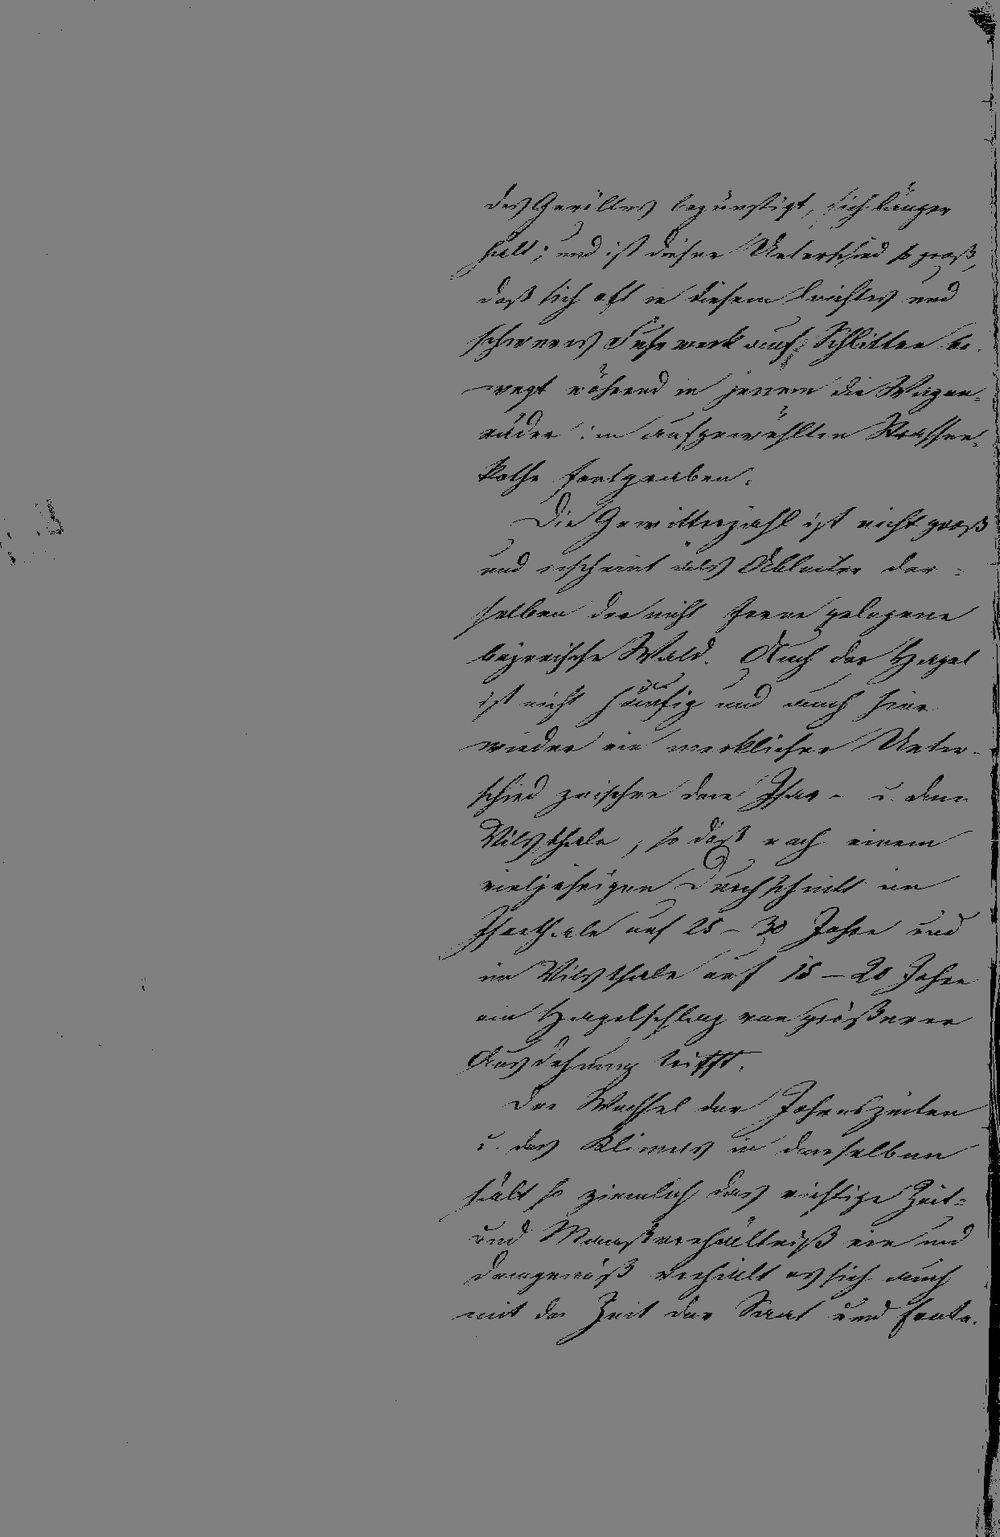 des Gerölles begünstigt, sich länger
hält; und ist dieser Unterschied so groß,
daß sich oft in diesem leichtes und
schweres Fuhrwerk auf Schlitten be-
wegt während in jenem die Wagen-
räder im aufgewühlten Strassen-
kothe fortgraben.
Die Gewitterzahl ist nicht groß
und erscheint als Ableiter der-
selben der nicht ferne gelegene
bayerische Wald. Auch der Hagel
ist nicht häufig und auch hier
wieder ein merklicher Unter-
schied zwischen dem Isar- u. dem
Vilsthale, so daß nach einem
vieljährigen Durchschnitt im
Isarthale auf 25-30 Jahre und
im Vilsthale auf 15-20 Jahre
ein Hagelschlag von größerer
Ausdehnung trifft.
Der Wechsel der Jahreszeiten
u. des Klimas in denselben
hält so ziemlich das richtige Zeit-
und Maasverhältniß ein und
demgemäß verhält es sich auch
mit der Zeit der Saat und Ernte.